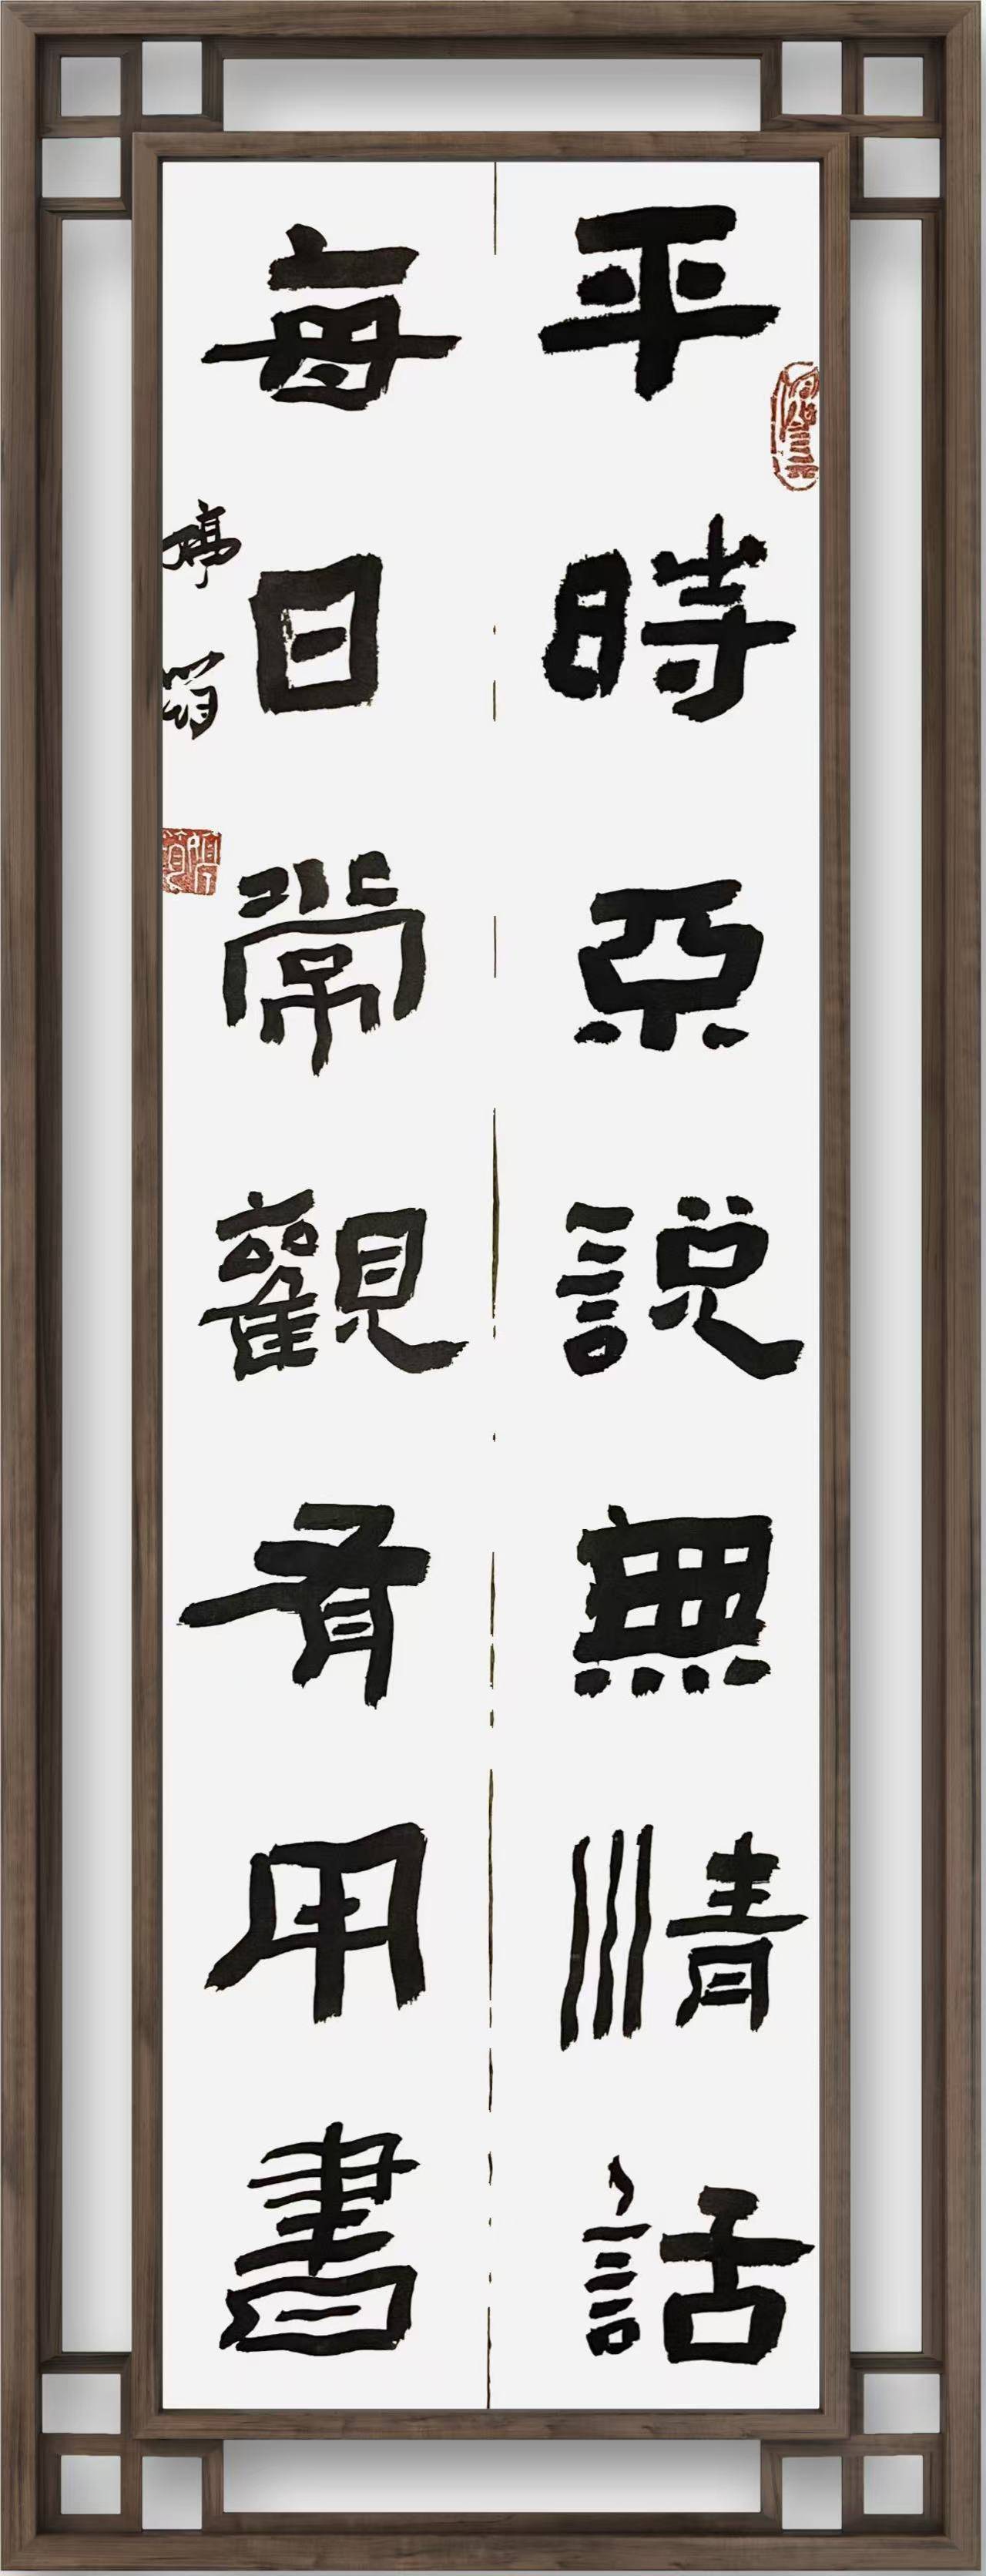 平時不説無情話
每日常觀有用書